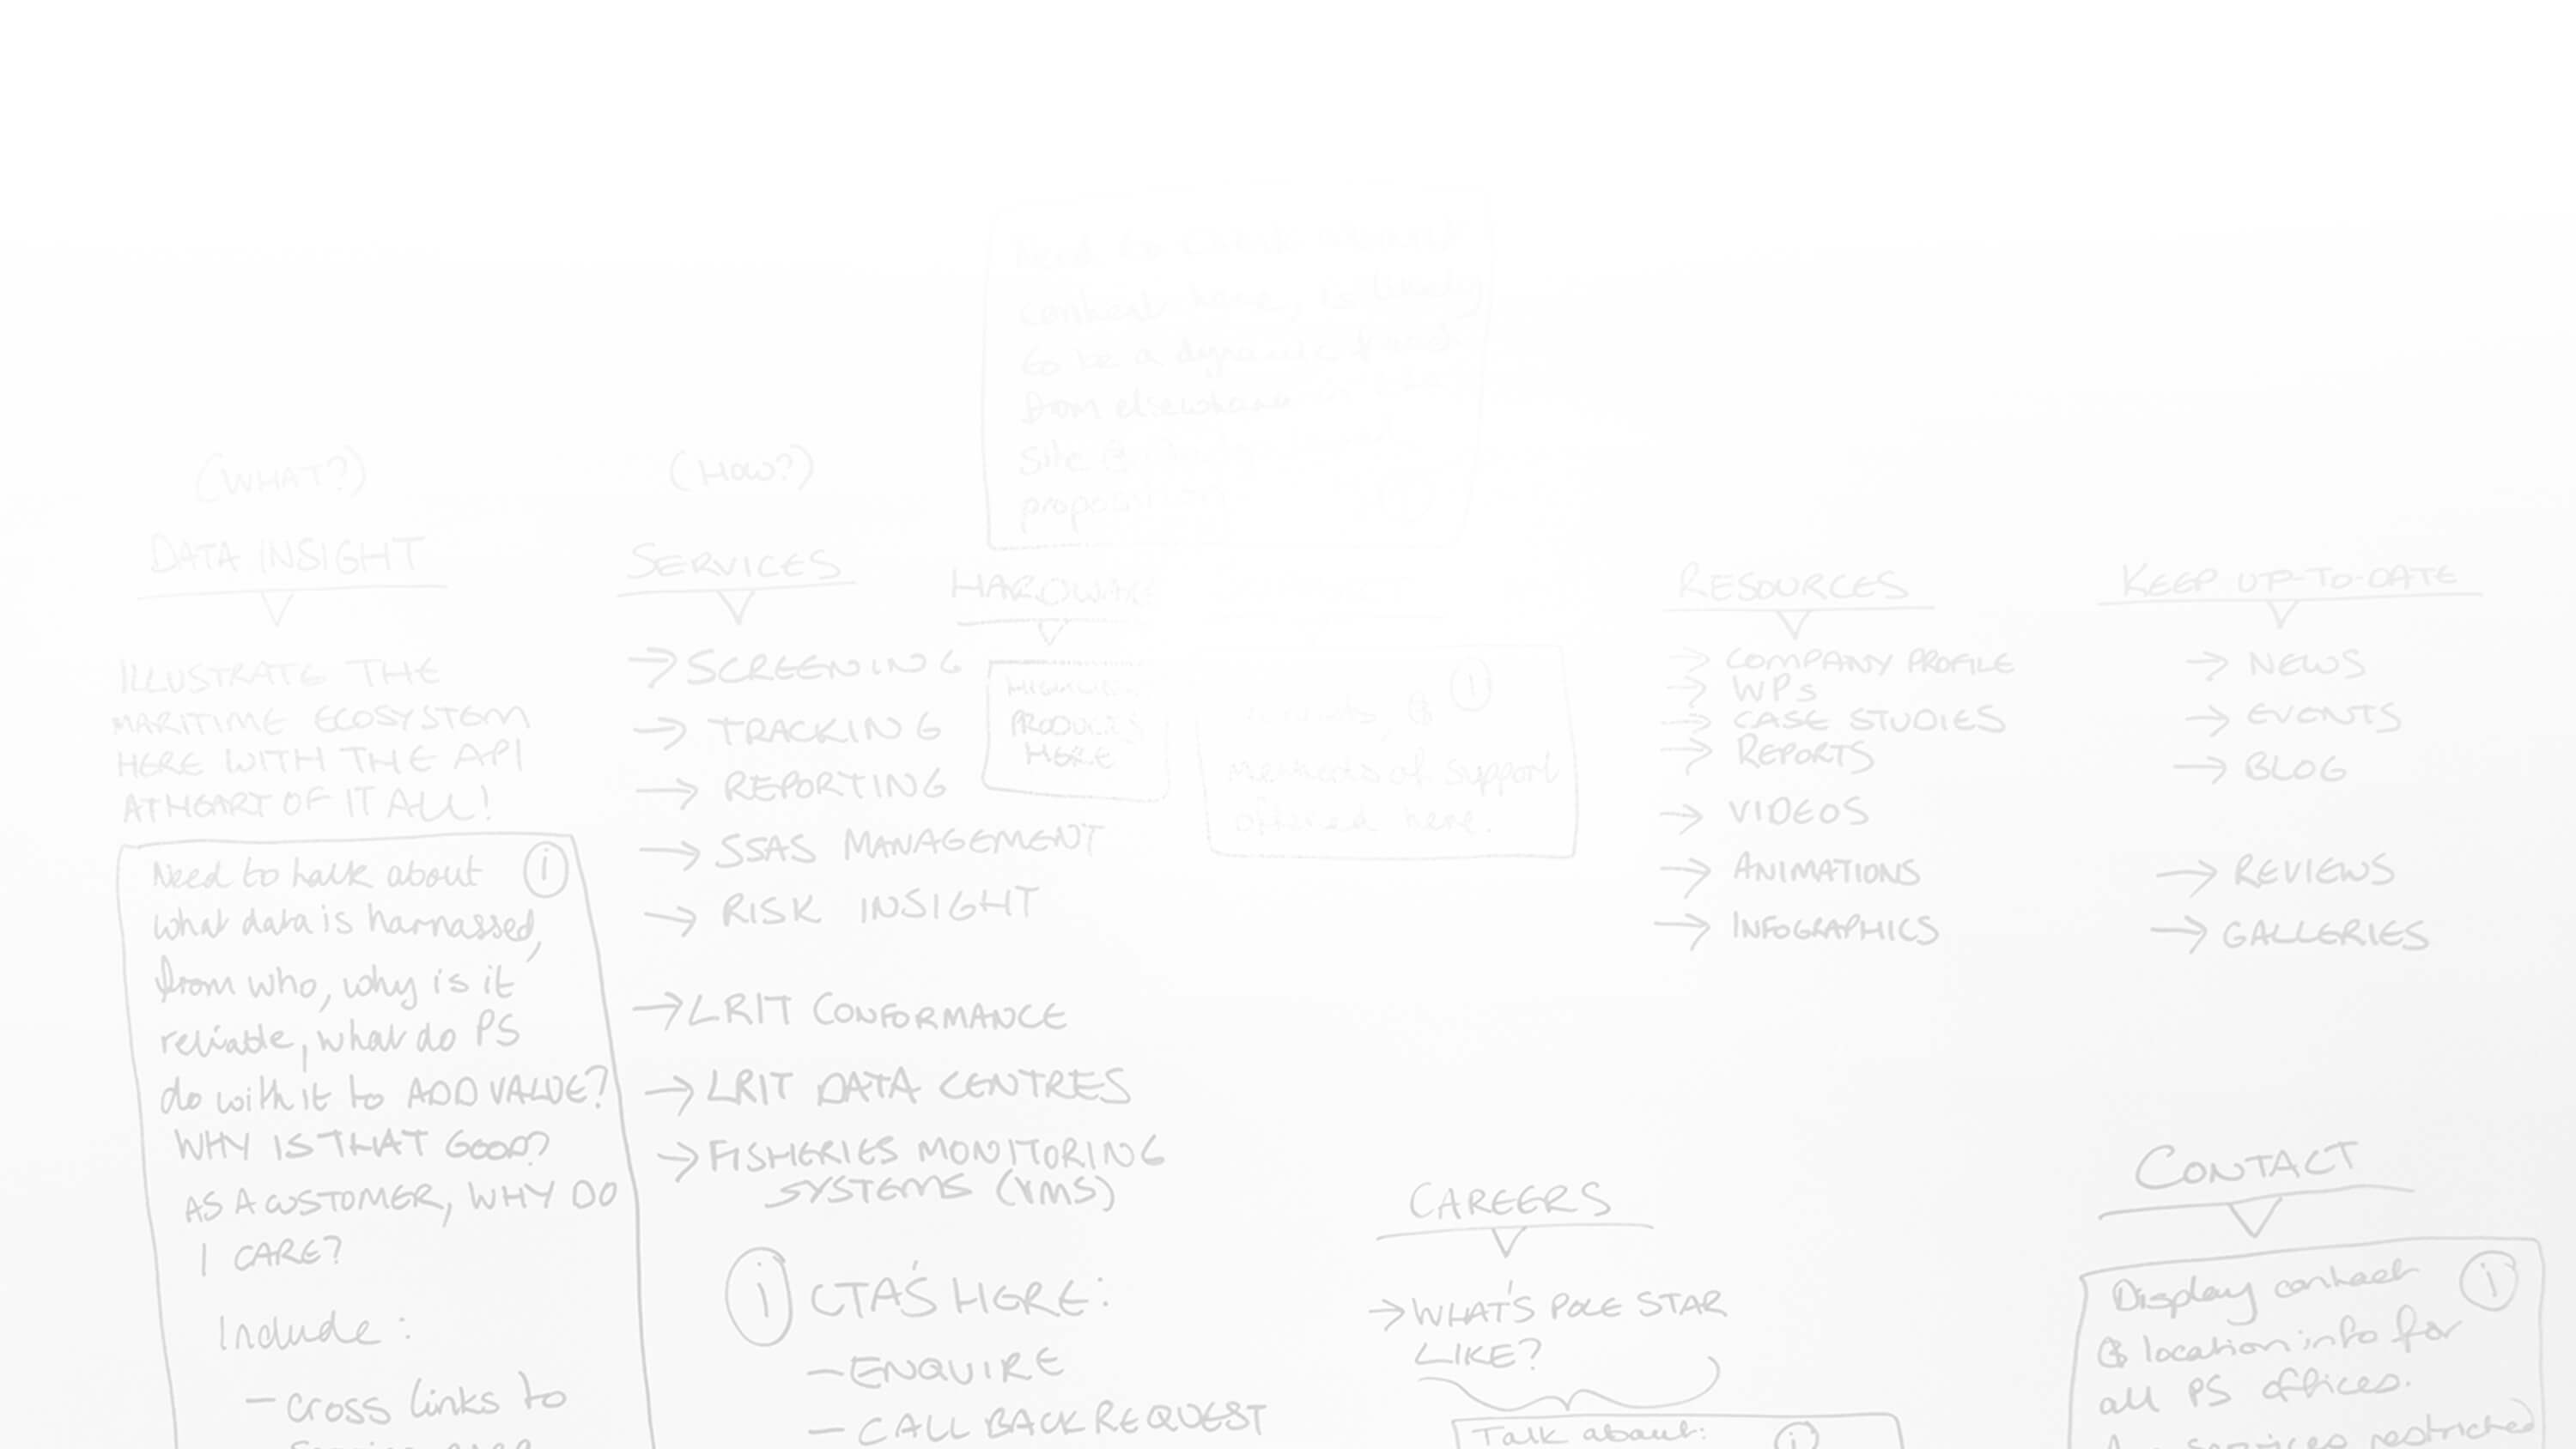 content here, is likely
to be a dynamic
from elsewhere
Site &
(WHAT?)
DATA INSIGHT
ILLUSTRATE THE
MARITIME ECOSYSTEM
HERE WITH THE API
AT HEART OF IT ALL!
Need to talk about
what data is harnassed,
from who, why is it
reliable, what do PS
do with it to ADD VALUE?
WHY IS THAT GOOD?
AS A CUSTOMER, WHY DO
I CARE?
Include:
- cross links to
(HOW?)
SERVICES
→ SCREENING
→ TRACKING
→ REPORTING
→ SSAS MANAGEMENT
→ RISK INSIGHT
→ LRIT CONFORMANCE
→ LRIT DATA CENTRES
→ FISHERIES MONITORING
SYSTEMS (VMS)
i CTA'S HERE:
- ENQUIRE
- CALL BACK REQUEST
HARDWARE
PRODUCTS
HERE
i
methods of support
offered here.
RESOURCES
→ COMPANY PROFILE
→ WPs
→ CASE STUDIES
→ REPORTS
→ VIDEOS
→ ANIMATIONS
→ INFOGRAPHICS
KEEP UP-TO-DATE
→ NEWS
→ EVENTS
→ BLOG
→ REVIEWS
→ GALLERIES
CAREERS
→ WHAT'S POLE STAR
LIKE?
Talk about:
CONTACT
Display contact
& location info for
all PS offices.
restricted